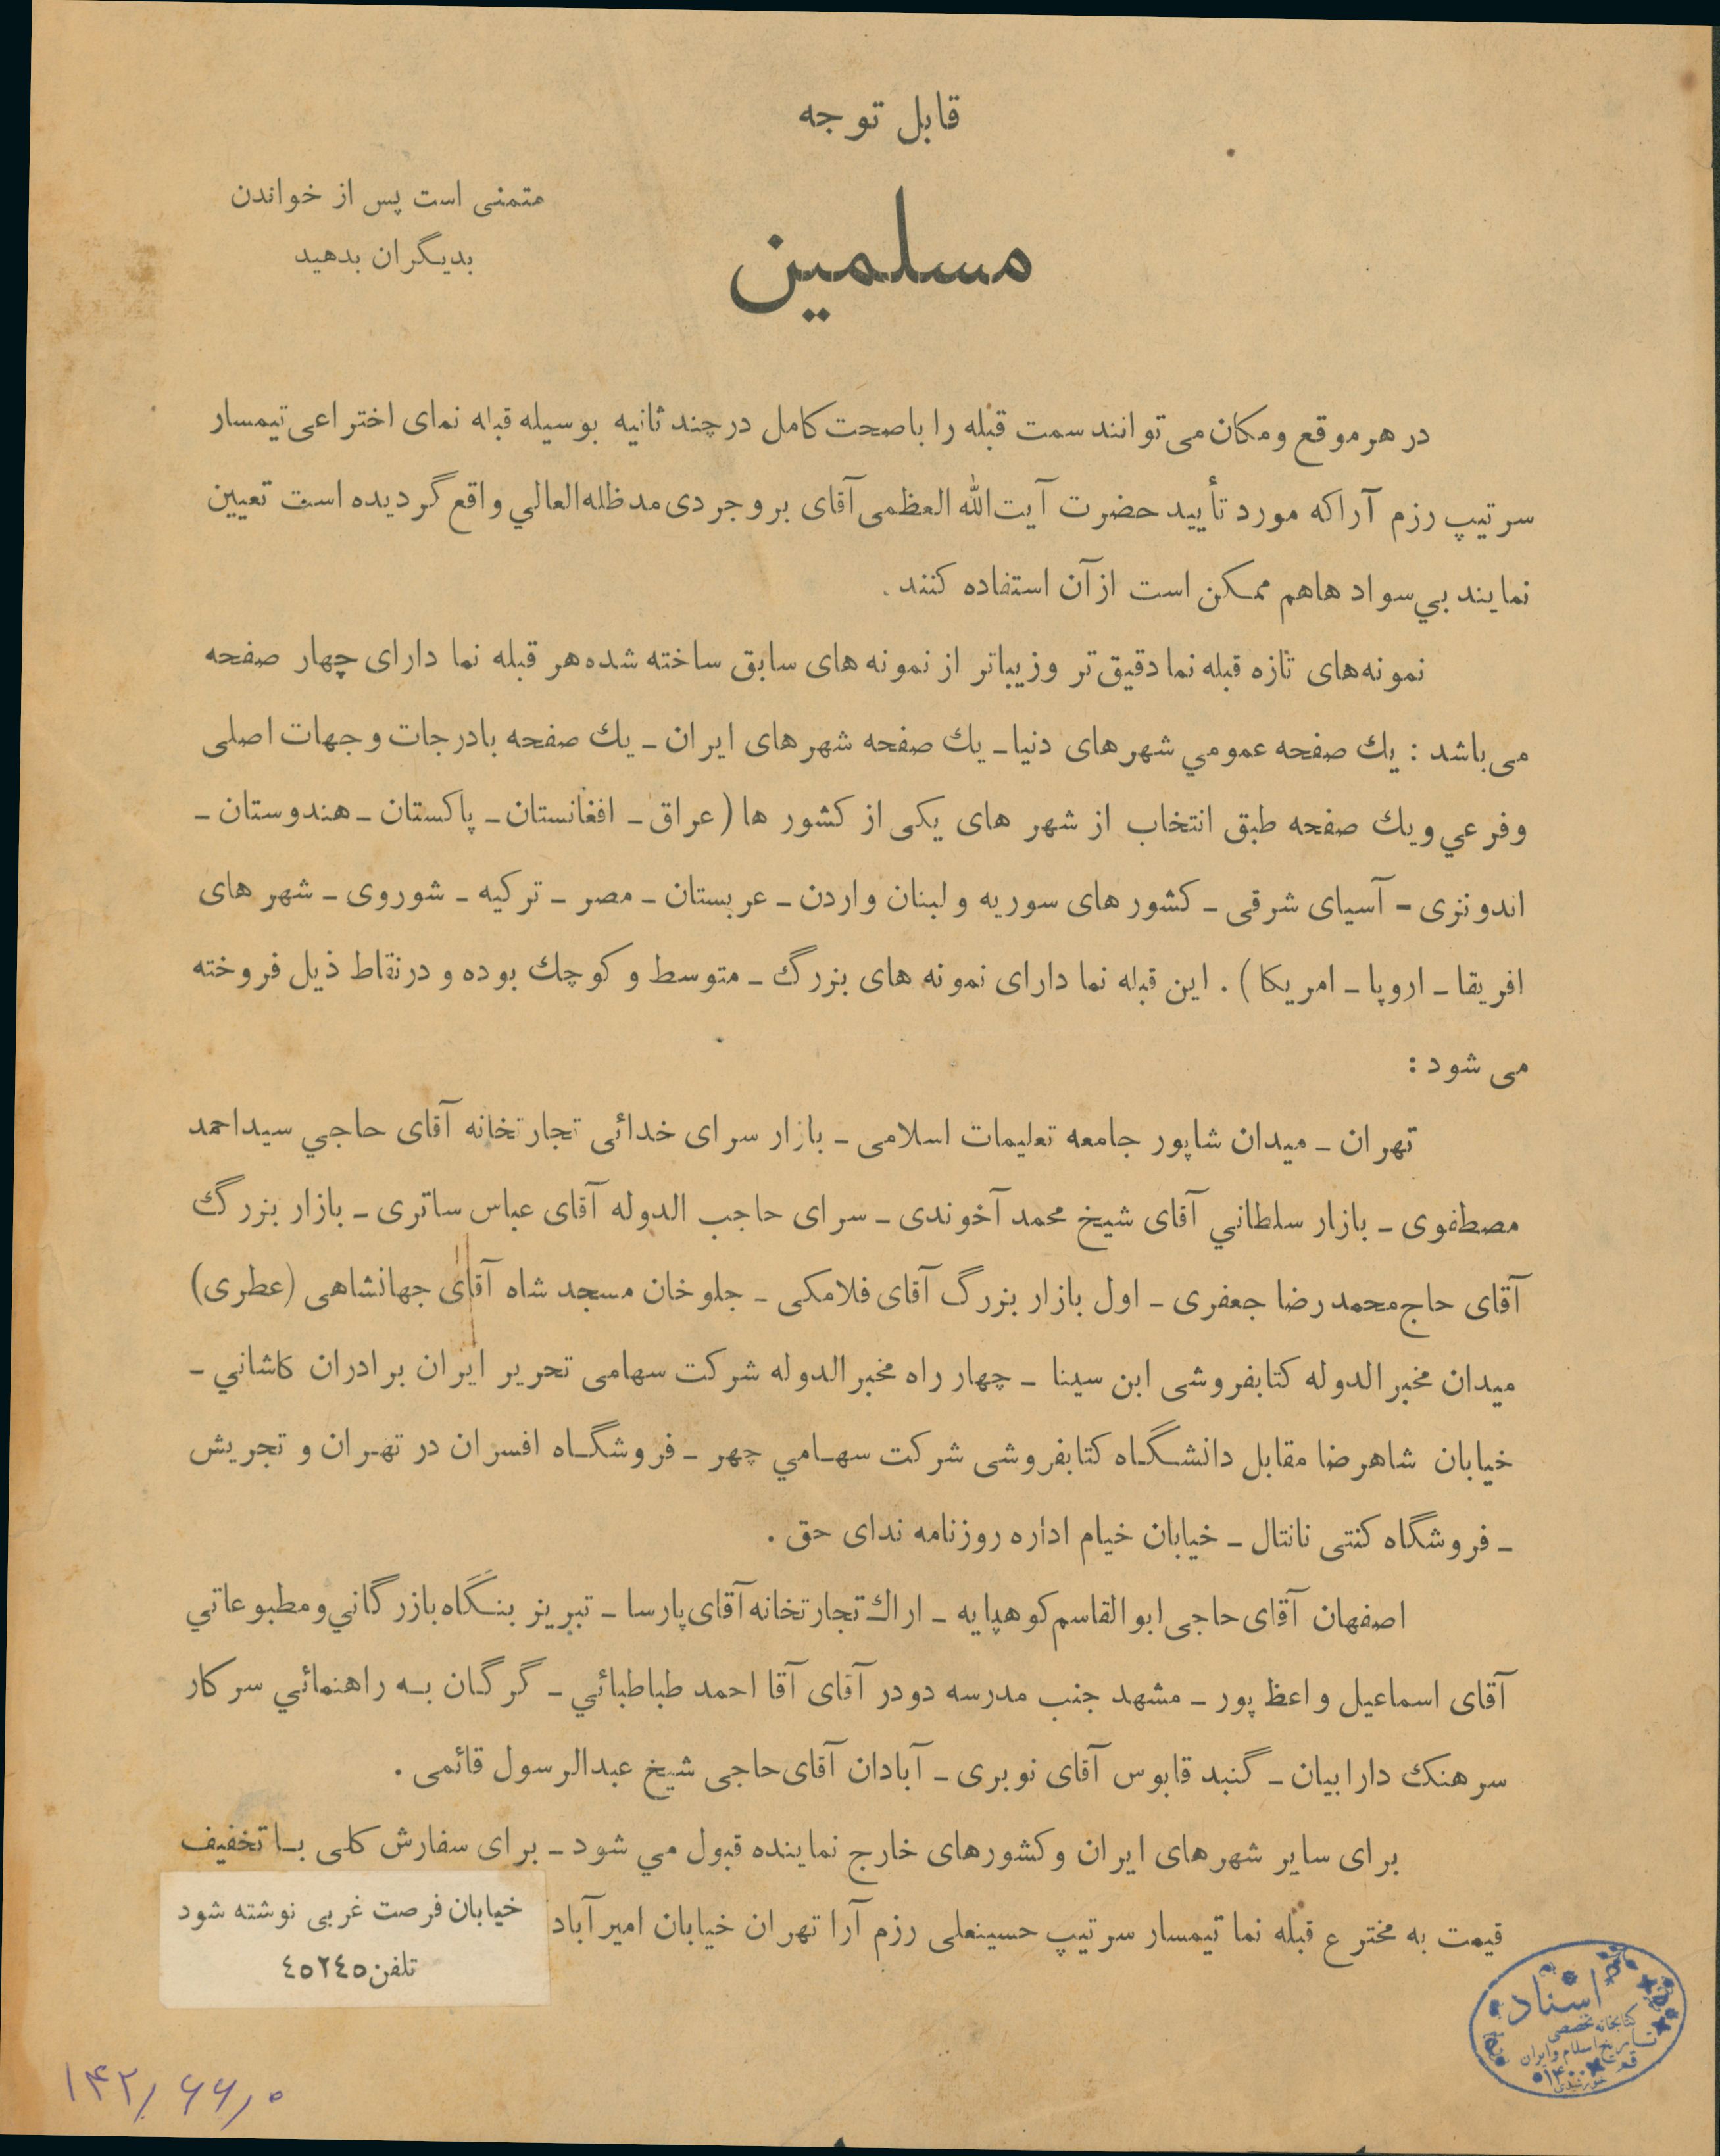 قابل توجه
متمنی است پس از خواندن
بدیگران بدهید
مسلمین
در هر موقع و مکان می توانند سمت قبله را باصحت کامل در چند ثانیه بوسیله قبله نمای اختراعی تیمسار
سرتیپ رزم آرا که مورد تأیید حضرت آیت‌الله العظمی آقای بروجردی مد ظله‌العالي واقع گردیده است تعیین
نمایند بي سواد ها هم ممکن است از آن استفاده کنند .
نمونه‌های تازه قبله نما دقیق تر و زیباتر از نمونه های سابق ساخته شده هر قبله نما دارای چهار صفحه
می باشد : یك صفحه عمومي شهر های دنیا ـ یك صفحه شهر های ایران ـ یك صفحه بادرجات و جهات اصلی
و فرعي و یك صفحه طبق انتخاب از شهر های یکی از کشور ها ( عراق ـ افغانستان ـ پاکستان ـ هندوستان ـ
اندونزی - آسیای شرقی ـ کشور های سوریه و لبنان و اردن ـ عربستان ـ مصر ـ ترکیه ـ شوروی ـ شهر های
افریقا ـ اروپا ـ امریکا ) . این قبله نما دارای نمونه های بزرگ ـ متوسط و کوچك بوده و در نقاط ذیل فروخته
می شود :
تهران ـ میدان شاپور جامعه تعلیمات اسلامی ـ بازار سرای خدائی تجارتخانه آقای حاجي سیداحمد
مصطفوی ـ بازار سلطاني آقای شیخ محمد آخوندی ـ سرای حاجب الدوله آقای عباس ساتری ـ بازار بزرگ
آقای حاج محمد رضا جعفری ـ اول بازار بزرگ آقای فلامکی ـ جلوخان مسجد شاه آقای جهانشاهی (عطری)
میدان مخبر الدوله کتابفروشی ابن سینا ـ چهار راه مخبر الدوله شرکت سهامی تحریر ایران برادران کاشاني ـ
خیابان شاهرضا مقابل دانشگاه کتابفروشی شرکت سهامي چهر ـ فروشگاه افسران در تهران و تجریش
ـ فروشگاه کنتی نانتال ـ خیابان خیام اداره روزنامه ندای حق .
اصفهان آقای حاجی ابوالقاسم کوهپایه ـ اراك تجارتخانه آقای پارسا ـ تبریز بنگاه بازرگاني و مطبوعاتي
آقای اسماعیل واعظ پور ـ مشهد جنب مدرسه دودر آقای آقا احمد طباطبائي ـ گرگان به راهنمائي سرکار
سرهنك دارابیان ـ گنبد قابوس آقای نوبری ـ آبادان آقای حاجی شیخ عبدالرسول قائمی .
برای سایر شهر های ایران و کشورهای خارج نماینده قبول مي شود ـ برای سفارش کلی با تخفیف
قیمت به مخترع قبله نما تیمسار سرتیپ حسینعلی رزم آرا تهران خیابان امیر آباد
خیابان فرصت غربی نوشته شود
تلفن ٤٥٢٤٥
اسناد
کتابخانه تخصصی
تاریخ اسلام و ایران
قم
۱۴۲٫۶۶٫۰